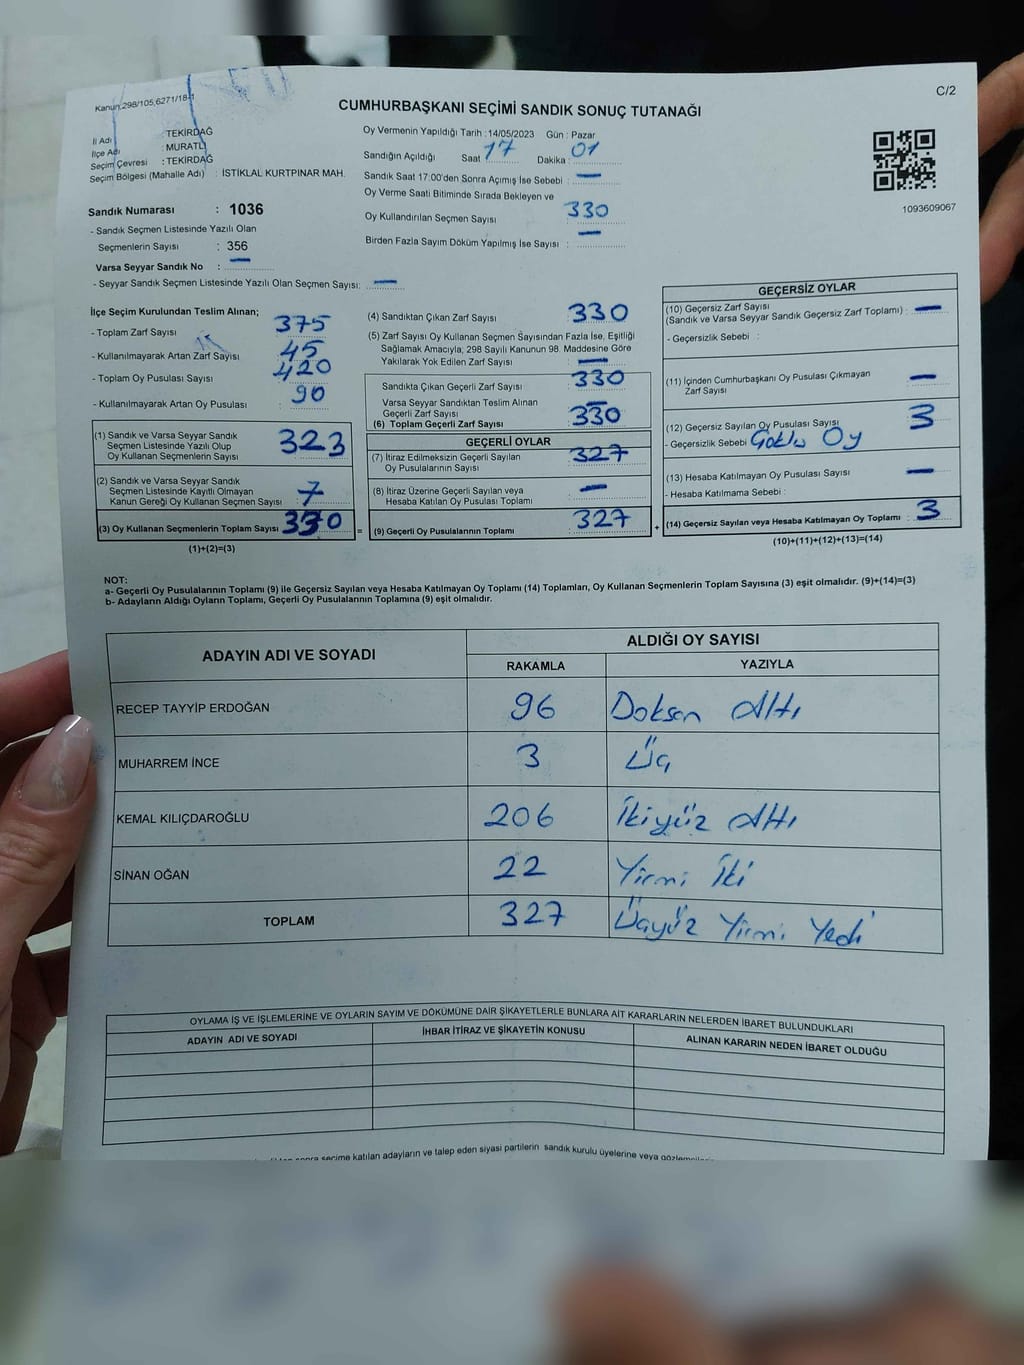 Kanun:298/105,6271/18-1
C/2
CUMHURBAŞKANI SEÇİMİ SANDIK SONUÇ TUTANAĞI
İl Adı : TEKİRDAĞ
İlçe Adı : MURATLI
Seçim Çevresi : TEKİRDAĞ
Seçim Bölgesi (Mahalle Adı) : İSTİKLAL KURTPINAR MAH.
Sandık Numarası : 1036
- Sandık Seçmen Listesinde Yazılı Olan
Seçmenlerin Sayısı : 356
Varsa Seyyar Sandık No : —
- Seyyar Sandık Seçmen Listesinde Yazılı Olan Seçmen Sayısı: —
Oy Vermenin Yapıldığı Tarih :14/05/2023 Gün : Pazar
Sandığın Açıldığı Saat 17 Dakika : 01
Sandık Saat 17:00'den Sonra Açımış İse Sebebi : —
Oy Verme Saati Bitiminde Sırada Bekleyen ve
Oy Kullandırılan Seçmen Sayısı 330
Birden Fazla Sayım Döküm Yapılmış İse Sayısı : —
1093609067
İlçe Seçim Kurulundan Teslim Alınan;
- Toplam Zarf Sayısı 375
- Kullanılmayarak Artan Zarf Sayısı 45
- Toplam Oy Pusulası Sayısı 420
- Kullanılmayarak Artan Oy Pusulası : 90
(1) Sandık ve Varsa Seyyar Sandık
Seçmen Listesinde Yazılı Olup
Oy Kullanan Seçmenlerin Sayısı 323
(2) Sandık ve Varsa Seyyar Sandık
Seçmen Listesinde Kayıtlı Olmayan
Kanun Gereği Oy Kullanan Seçmen Sayısı : 7
(3) Oy Kullanan Seçmenlerin Toplam Sayısı 330
(1)+(2)=(3)
(4) Sandıktan Çıkan Zarf Sayısı : 330
(5) Zarf Sayısı Oy Kullanan Seçmen Sayısından Fazla İse, Eşitliği
Sağlamak Amacıyla, 298 Sayılı Kanunun 98. Maddesine Göre
Yakılarak Yok Edilen Zarf Sayısı : —
Sandıkta Çıkan Geçerli Zarf Sayısı : 330
Varsa Seyyar Sandıktan Teslim Alınan
Geçerli Zarf Sayısı : —
(6) Toplam Geçerli Zarf Sayısı : 330
GEÇERLİ OYLAR
(7) İtiraz Edilmeksizin Geçerli Sayılan
Oy Pusulalarının Sayısı : 327
(8) İtiraz Üzerine Geçerli Sayılan veya
Hesaba Katılan Oy Pusulası Toplamı : —
= (9) Geçerli Oy Pusulalarının Toplamı : 327 +
GEÇERSİZ OYLAR
(10) Geçersiz Zarf Sayısı
(Sandık ve Varsa Seyyar Sandık Geçersiz Zarf Toplamı) : —
- Geçersizlik Sebebi :
(11) İçinden Cumhurbaşkanı Oy Pusulası Çıkmayan
Zarf Sayısı : —
(12) Geçersiz Sayılan Oy Pusulası Sayısı : 3
- Geçersizlik Sebebi : Oy
(13) Hesaba Katılmayan Oy Pusulası Sayısı : —
- Hesaba Katılmama Sebebi :
(14) Geçersiz Sayılan veya Hesaba Katılmayan Oy Toplamı : 3
(10)+(11)+(12)+(13)=(14)
NOT:
a- Geçerli Oy Pusulalarının Toplamı (9) ile Geçersiz Sayılan veya Hesaba Katılmayan Oy Toplamı (14) Toplamları, Oy Kullanan Seçmenlerin Toplam Sayısına (3) eşit olmalıdır. (9)+(14)=(3)
b- Adayların Aldığı Oyların Toplamı, Geçerli Oy Pusulalarının Toplamına (9) eşit olmalıdır.
ADAYIN ADI VE SOYADI
ALDIĞI OY SAYISI
RAKAMLA YAZIYLA
RECEP TAYYİP ERDOĞAN 96 Doksan Altı
MUHARREM İNCE 3 Üç
KEMAL KILIÇDAROĞLU 206 İkiyüz Altı
SİNAN OĞAN 22 Yirmi İki
TOPLAM 327 Üçyüz Yirmi Yedi
OYLAMA İŞ VE İŞLEMLERİNE VE OYLARIN SAYIM VE DÖKÜMÜNE DAİR ŞİKAYETLERLE BUNLARA AİT KARARLARIN NELERDEN İBARET BULUNDUKLARI
ADAYIN ADI VE SOYADI İHBAR İTİRAZ VE ŞİKAYETİN KONUSU ALINAN KARARIN NEDEN İBARET OLDUĞU
sonra seçime katılan adayların ve talep eden siyasi partilerin sandık kurulu üyelerine veya